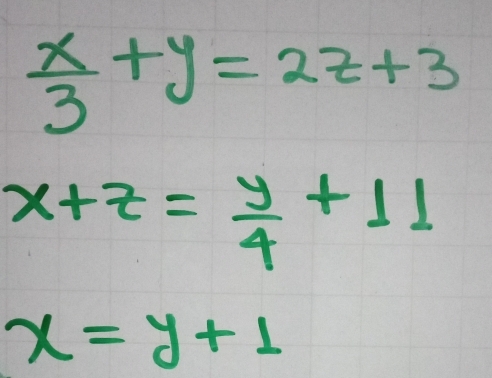 x/3 + y = 2z + 3
x + z = y/4 + 11
x = y + 1